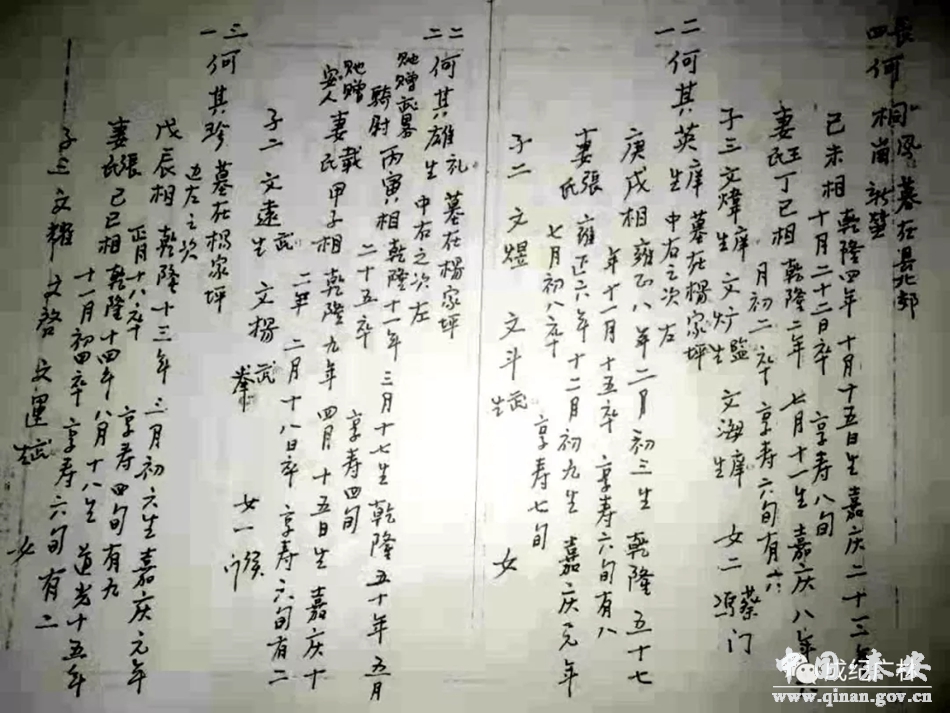 長四 何桐岗 凤 墓在县北郊 新茔
己未相 乾隆四年十月十五日生 嘉庆二十二年
十月二十二日卒 享寿八旬
妻王氏 丁巳相 乾隆二年七月十一生 嘉庆八年
月初二卒 享寿六旬有六
子三 文炜庠生 文炉监生 文海庠生 女二 蔡冯门
二一 何其英庠生 墓在楊家坪 中右之次左
庚戌相 雍正八年二月初三生 乾隆五十七
年十一月十五卒 享寿六旬有八
妻張氏 雍正六年十二月初九生 嘉庆元年
七月初八卒 享寿七旬
子二 文煜 文斗武生 女
二二 何其雄礼生 墓在楊家坪 中右之次左
貤赠武畧騎尉 丙寅相 乾隆十一年三月十七生 乾隆五十年五月
二十五卒 享寿四旬
貤赠安人 妻載氏 甲子相 乾隆九年四月十五日生 嘉庆十
二年二月十八日卒 享寿六旬有二
子二 文遠武生 文楊武举 女一 侯门
三一 何其珍 墓在楊家坪 边左之次
戊辰相 乾隆十三年三月初六生 嘉庆元年
正月十八卒 享寿四旬有九
妻張氏 己巳相 乾隆十四年八月十八生 道光十五年
十一月初四卒 享寿六旬有二
子三 文耀 文啓 文運武生 女
中国秦安
成纪广林
www.qinan.gov.cn